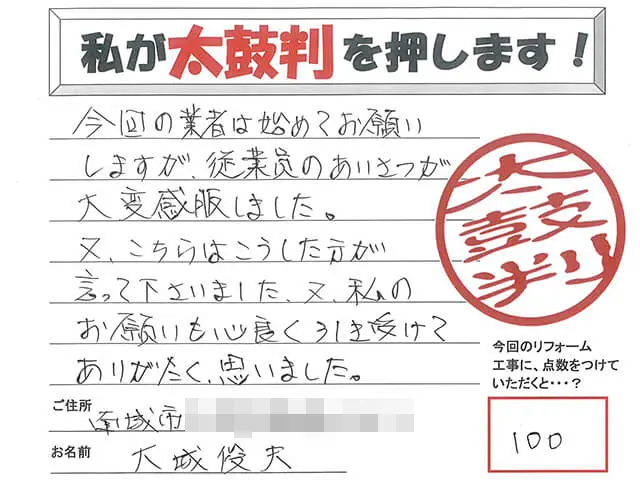 私が太鼓判を押します!
今回の業者は始めてお願い
しますが、従業員のあいさつが
大変感服しました。
又、こちらはこうした方が
言って下さいました、又、私の
お願いも心良く引き受けて
ありがたく、思いました。
太鼓判
今回のリフォーム
工事に、点数をつけて
いただくと・・・?
100
ご住所 南城市
お名前 大城俊夫